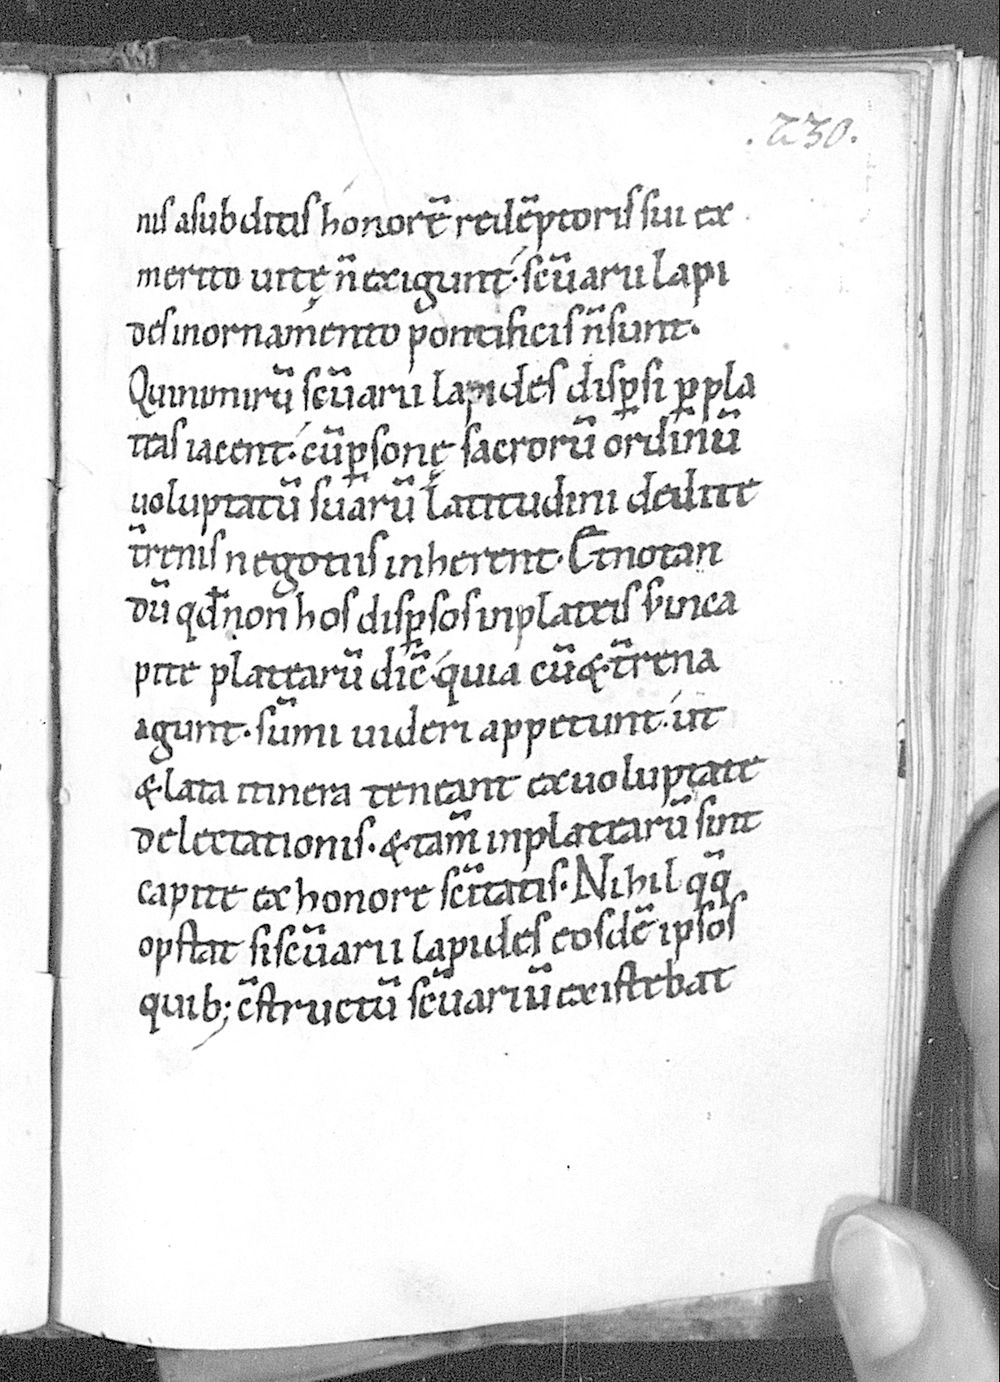 .230.
nis a subditis honorē redēptoris sui ex
merito uitę n̄ exigunt· scūarii lapi
des in ornamento pontificis n̄ sunt·
Qui nimirū scūarii lapides disꝑsi ꝑ pla
teas iacent· cū ꝑsonę sacrorū ordinū
uoluptatū suarū latitudini dedite
t̄renis negotiis inherent· Et notan
dū qđ non hos disꝑsos in plateis s; in ca
pite platearū dic̄· quia cū & t̄rena
agunt· sūmi uideri appetunt· ut
& lata itinera teneant ex uoluptate
delectationis· & tam̄ in platearū sint
capite ex honore sc̄itatis· Nihil q̄q̄
opstat si scūarii lapides eosdē ipsos
quib; c̄structū scūariū existebat